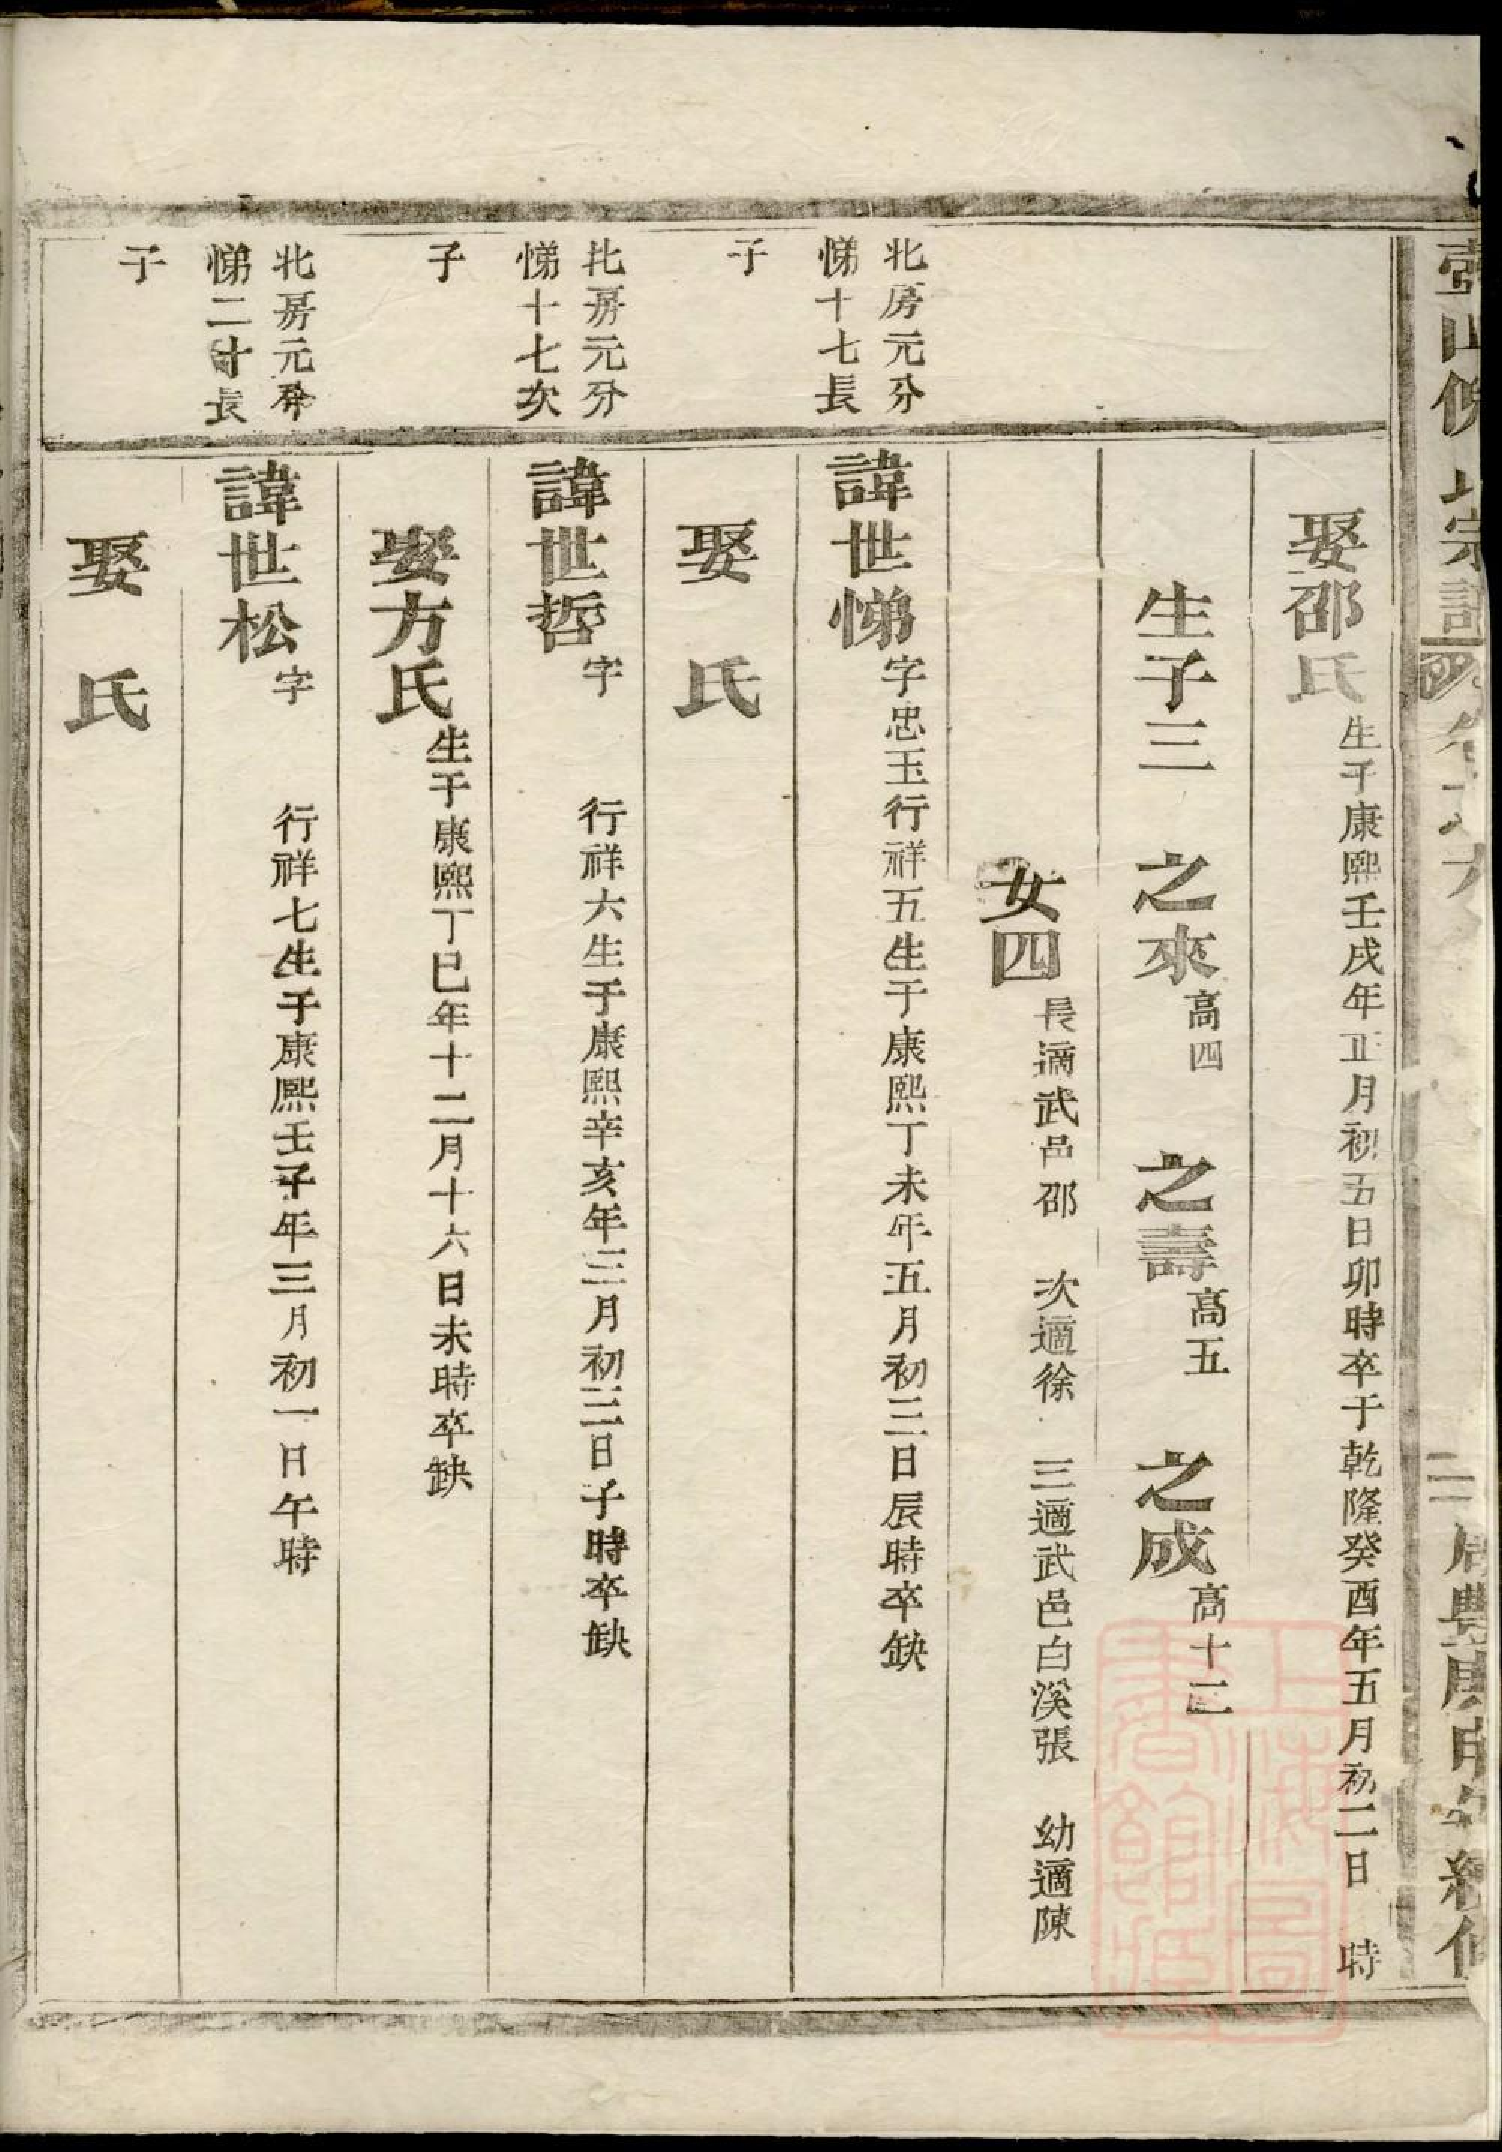 山 氏宗譜
二 豊庚申 續修
娶邵氏生于康熙壬戌年正月初五日卯時卒于乾隆癸酉年五月初二日 時
生子三 之來高四 之壽高五 之成高十二
女四長適武邑邵 次適徐 三適武邑白溪張 幼適陳
北房元分
悌十七長
子
諱世悌字忠玉行祥五生于康熙丁未年五月初三日辰時卒缺
娶 氏
北房元分
悌十七次
子
諱世哲字 行祥六生于康熙辛亥年三月初三日子時卒缺
娶方氏生于康熙丁巳年十二月十六日未時卒缺
北房元分
悌二十長
子
諱世松字 行祥七生于康熙壬子年三月初一日午時
娶 氏
上海圖
書館藏